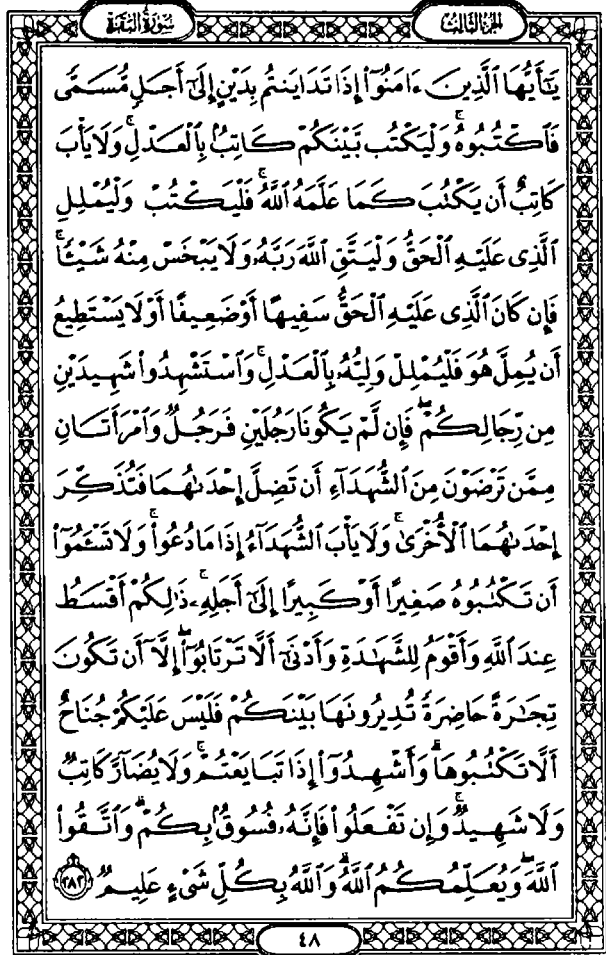 الجزء الثالث سورة البقرة
يَٰٓأَيُّهَا ٱلَّذِينَ ءَامَنُوٓا۟ إِذَا تَدَايَنتُم بِدَيْنٍ إِلَىٰٓ أَجَلٍ مُّسَمًّى
فَٱكْتُبُوهُ ۚ وَلْيَكْتُب بَّيْنَكُمْ كَاتِبٌۢ بِٱلْعَدْلِ ۚ وَلَا يَأْبَ
كَاتِبٌ أَن يَكْتُبَ كَمَا عَلَّمَهُ ٱللَّهُ ۚ فَلْيَكْتُبْ وَلْيُمْلِلِ
ٱلَّذِى عَلَيْهِ ٱلْحَقُّ وَلْيَتَّقِ ٱللَّهَ رَبَّهُۥ وَلَا يَبْخَسْ مِنْهُ شَيْـًٔا ۚ
فَإِن كَانَ ٱلَّذِى عَلَيْهِ ٱلْحَقُّ سَفِيهًا أَوْ ضَعِيفًا أَوْ لَا يَسْتَطِيعُ
أَن يُمِلَّ هُوَ فَلْيُمْلِلْ وَلِيُّهُۥ بِٱلْعَدْلِ ۚ وَٱسْتَشْهِدُوا۟ شَهِيدَيْنِ
مِن رِّجَالِكُمْ ۖ فَإِن لَّمْ يَكُونَا رَجُلَيْنِ فَرَجُلٌ وَٱمْرَأَتَانِ
مِمَّن تَرْضَوْنَ مِنَ ٱلشُّهَدَآءِ أَن تَضِلَّ إِحْدَىٰهُمَا فَتُذَكِّرَ
إِحْدَىٰهُمَا ٱلْأُخْرَىٰ ۚ وَلَا يَأْبَ ٱلشُّهَدَآءُ إِذَا مَا دُعُوا۟ ۚ وَلَا تَسْـَٔمُوٓا۟
أَن تَكْتُبُوهُ صَغِيرًا أَوْ كَبِيرًا إِلَىٰٓ أَجَلِهِۦ ۚ ذَٰلِكُمْ أَقْسَطُ
عِندَ ٱللَّهِ وَأَقْوَمُ لِلشَّهَٰدَةِ وَأَدْنَىٰٓ أَلَّا تَرْتَابُوٓا۟ ۖ إِلَّآ أَن تَكُونَ
تِجَٰرَةً حَاضِرَةً تُدِيرُونَهَا بَيْنَكُمْ فَلَيْسَ عَلَيْكُمْ جُنَاحٌ
أَلَّا تَكْتُبُوهَا ۗ وَأَشْهِدُوٓا۟ إِذَا تَبَايَعْتُمْ ۚ وَلَا يُضَآرَّ كَاتِبٌ
وَلَا شَهِيدٌ ۚ وَإِن تَفْعَلُوا۟ فَإِنَّهُۥ فُسُوقٌۢ بِكُمْ ۗ وَٱتَّقُوا۟
ٱللَّهَ ۖ وَيُعَلِّمُكُمُ ٱللَّهُ ۗ وَٱللَّهُ بِكُلِّ شَىْءٍ عَلِيمٌ ٢٨٢
٤٨